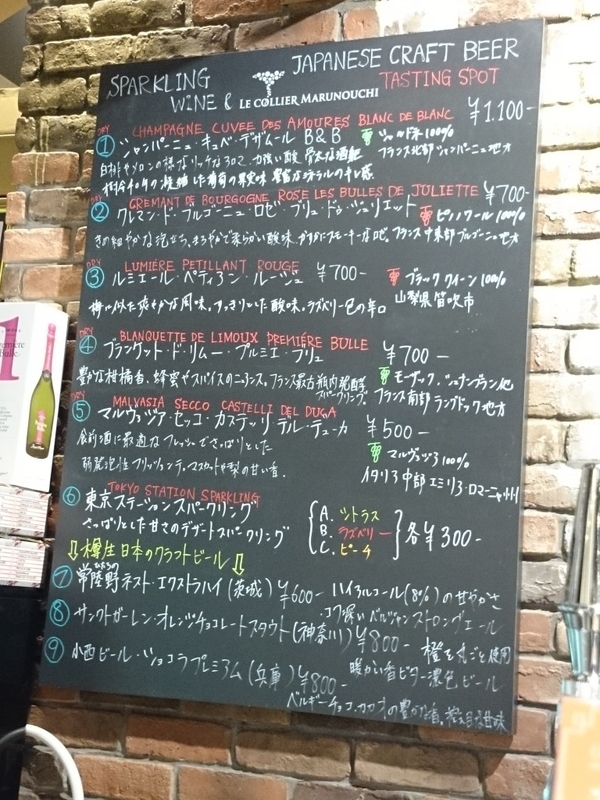 SPARKLING WINE &
JAPANESE CRAFT BEER
LE COLLIER MARUNOUCHI
TASTING SPOT
DRY
CHAMPAGNE CUVEE DES AMOURES BLANC DE BLANC ¥1.100-
① シャンパーニュ・キュベ・デザムール B&B シャルドネ100%
フランス北部シャンパーニュ地方
DRY
CREMANT DE BOURGOGNE ROSE LES BULLES DE JULIETTE ¥700-
② クレマン・ド・ブルゴーニュ・ロゼ・ブリュ・ドゥ・ジュリエット ピノノワール100%
きめ細やかな泡立ち、まろやかで柔らかい酸味、かすかにスモーキーなロゼ。フランス中東部ブルゴーニュ地方
DRY
LUMIÈRE PETILLANT ROUGE
③ ルミエール・ペティアン・ルージュ ¥700- ブラッククイーン100%
山梨県笛吹市
梅に似た爽やかな風味。すっきりとした酸味。ラズベリー色の辛口
DRY
BLANQUETTE DE LIMOUX PREMIÉRE BULLE
④ ブランケット・ド・リムー・プルミエ・ブリュ ¥700-
豊かな柑橘香、蜂蜜やスパイスのニュアンス。フランス最古瓶内発酵スパークリング
モーザック、シュナンブラン他
フランス南部ラングドック地方
DRY
MALVASIA SECCO CASTELLI DEL DUCA
⑤ マルヴァジア・セッコ・カステッリ デル・デューカ ¥500-
食前酒に最適なフレッシュでさっぱりとした
弱発泡性フリッツァンテ。マスカットや梨の甘い香。
マルヴァジア100%
イタリア中部エミリア・ロマーニャ州
TOKYO STATION SPARKLING
⑥ 東京ステーションスパークリング
さっぱりとした甘さのデザートスパークリング
A. シトラス
B. ラズベリー
C. ピーチ
各¥300-
⇩樽生 日本のクラフトビール⇩
ひたちの
⑦ 常陸野ネスト・エクストラハイ(茨城) ¥600- ハイアルコール(8%)の甘やかさ
コク深いベルジャンストロングエール
⑧ サンクトガーレン・オレンジチョコレートスタウト(神奈川) ¥800- 橙を丸ごと使用
暖かい香ビター濃色ビール
⑨ 小西ビール・ショコラプレミアム(兵庫) ¥800-
ベルギーチョコ、カカオの豊かな香、控えめな甘味